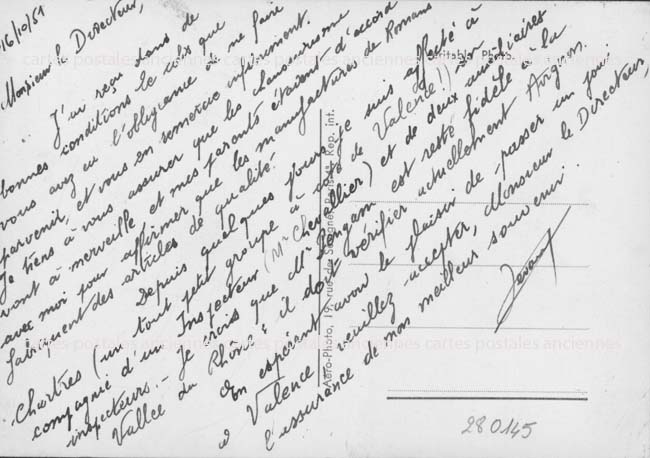 16/10/51
Monsieur le Directeur,
J'ai reçu dans de
bonnes conditions le colis que
vous avez eu l'obligeance de me faire
parvenir, et vous en remercie infiniment.
Je tiens à vous assurer que les chaussures me
vont à merveille et mes parents étaient d'accord
avec moi pour affirmer que les manufactures de Romans
fabriquent des articles de qualité.
Depuis quelques jours je suis affecté à
Chartres (un tout petit groupe à côté de Valence!!) en
compagnie d'un Inspecteur (Mr Chevallier) et de deux auxiliaires
inspecteurs. - Je crois que Mr est resté fidèle à la
Vallée du Rhône & il doit vérifier actuellement Avignon.
En espérant avoir le plaisir de passer un jour
à Valence, veuillez accepter, Monsieur le Directeur,
l'assurance de mon meilleur souvenir.
Véritable Photo
Aéro-Photo, 19, rue des Paris Rep. int.
280145
cartes postales anciennes cartes postales anciennes
cartes postales anciennes cartes postales anciennes